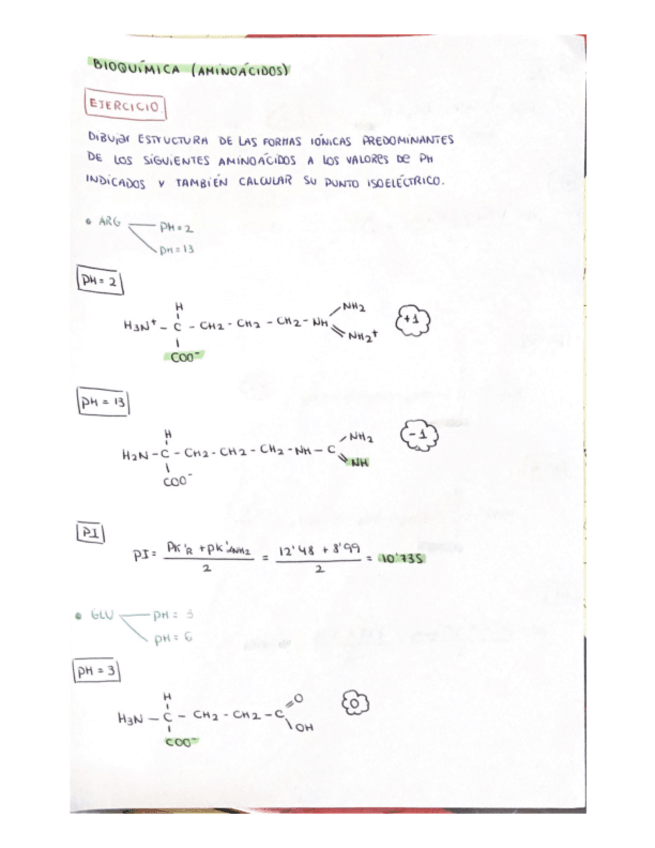 BIOQUÍMICA (AMINOÁCIDOS)
EJERCICIO.
DIBUJAR ESTRUCTURA DE LAS FORMAS IÓNICAS PREDOMINANTES
DE LOS SIGUIENTES AMINOÁCIDOS A LOS VALORES DE PH
INDICADOS Y TAMBIÉN CALCULAR SU PUNTO ISOELÉCTRICO.
• ARG PH=2
PH=13
PH=2
H
NH2
H3N+ - C - CH2 - CH2 - CH2 - NH
+1
NH2+
COO-
PH = 13
H
NH2
-1
H2N - C - CH2 - CH2 - CH2 - NH - C
NH
COO-
PI
PI= PK'R + PK'NH2 / 2 = 12'48 + 8'99 / 2 = 10'735
• GLU PH = 3
PH = 6
PH = 3
H
O
H3N - C - CH2 - CH2 - C
0
OH
COO-